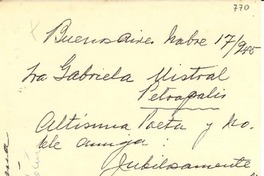 770
Buenos Aires Nobre 17/945
Sra Gabriela Mistral
Petropolis
Altísima Poeta y No-
ble amiga:
Jubilosamente